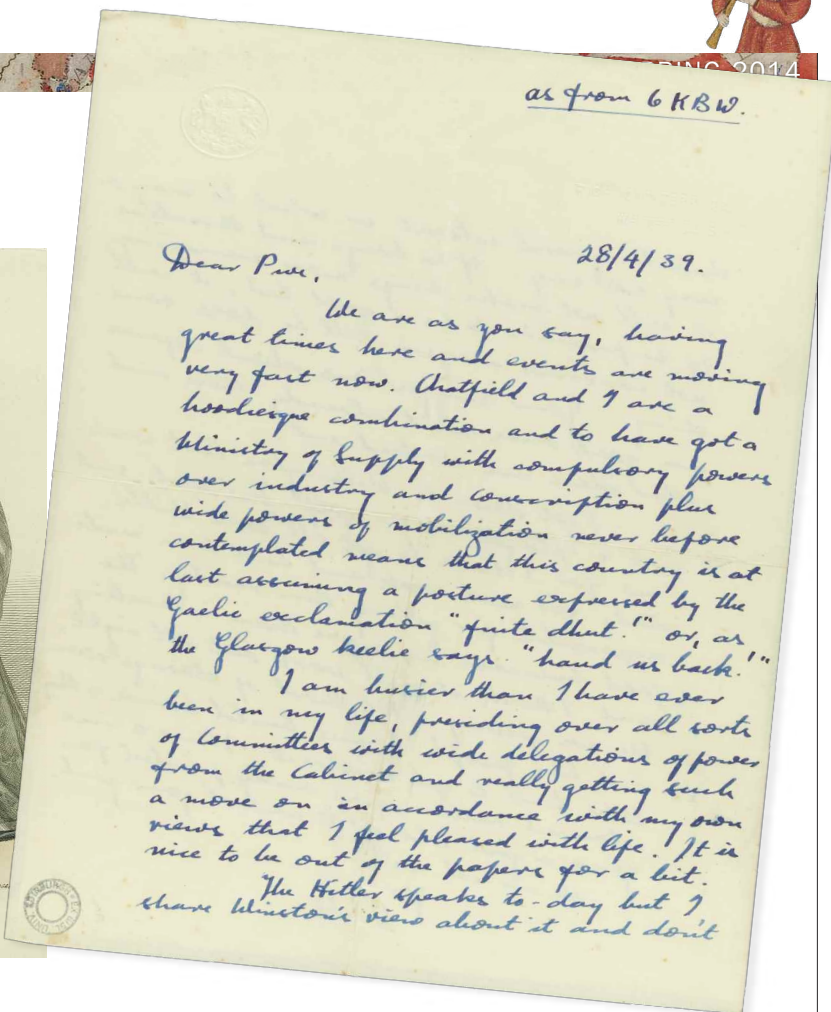 2014
as from 6 KBW.
28/4/39.
Dear
We are as you say, having
great times here and events are moving
very fast now. Chatfield and I are a
combination and to have got a
Ministry of Supply with compulsory powers
over industry and conscription plus
wide powers of mobilization never before
contemplated means that this country is at
last assuming a posture expressed by the
Gaelic exclamation " dhut!" or, as
the Glasgow keelie says "haud us back!"
I am busier than I have ever
been in my life, presiding over all sorts
of Committees with wide delegations of power
from the Cabinet and really getting such
a move on in accordance with my own
views that I feel pleased with life. It is
nice to be out of the papers for a bit.
The Hitler speaks to-day but I
share Winston's view about it and don't